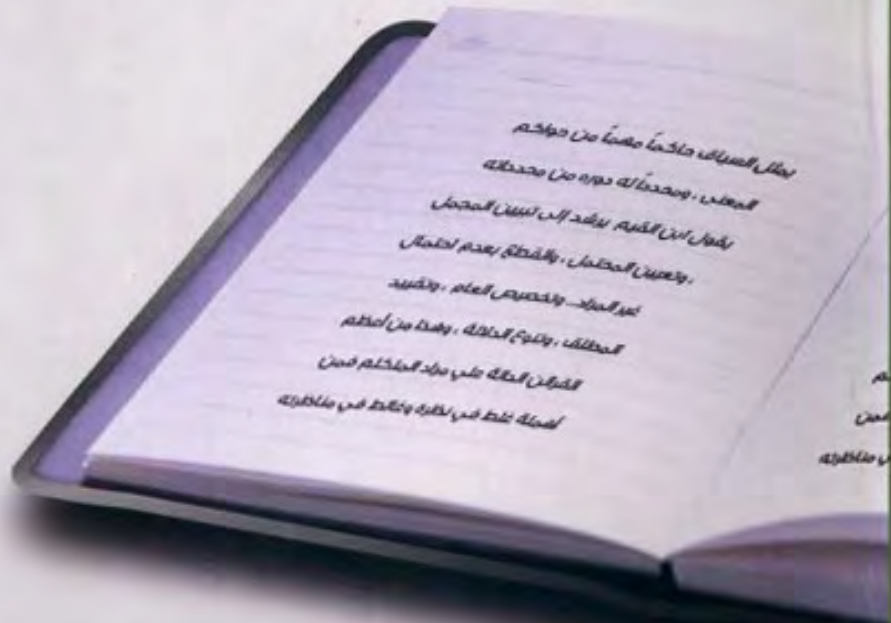 يمثل السياق حاكماً مهماً من حواكم
المعنى ، ومحدداً له دوره من محدداته
يقول ابن القيم يرشد إلى تبيين المجمل
، وتعيين المحتمل ، والقطع بعدم احتمال
غير المراد.. وتخصيص العام ، وتقييد
المطلق ، وتنوع الدلالة ، وهذا من أعظم
القرائن الدالة علي مراد المتكلم فمن
أهمله غلط في نظره وغالط في مناظرته
فمن
مناظرته